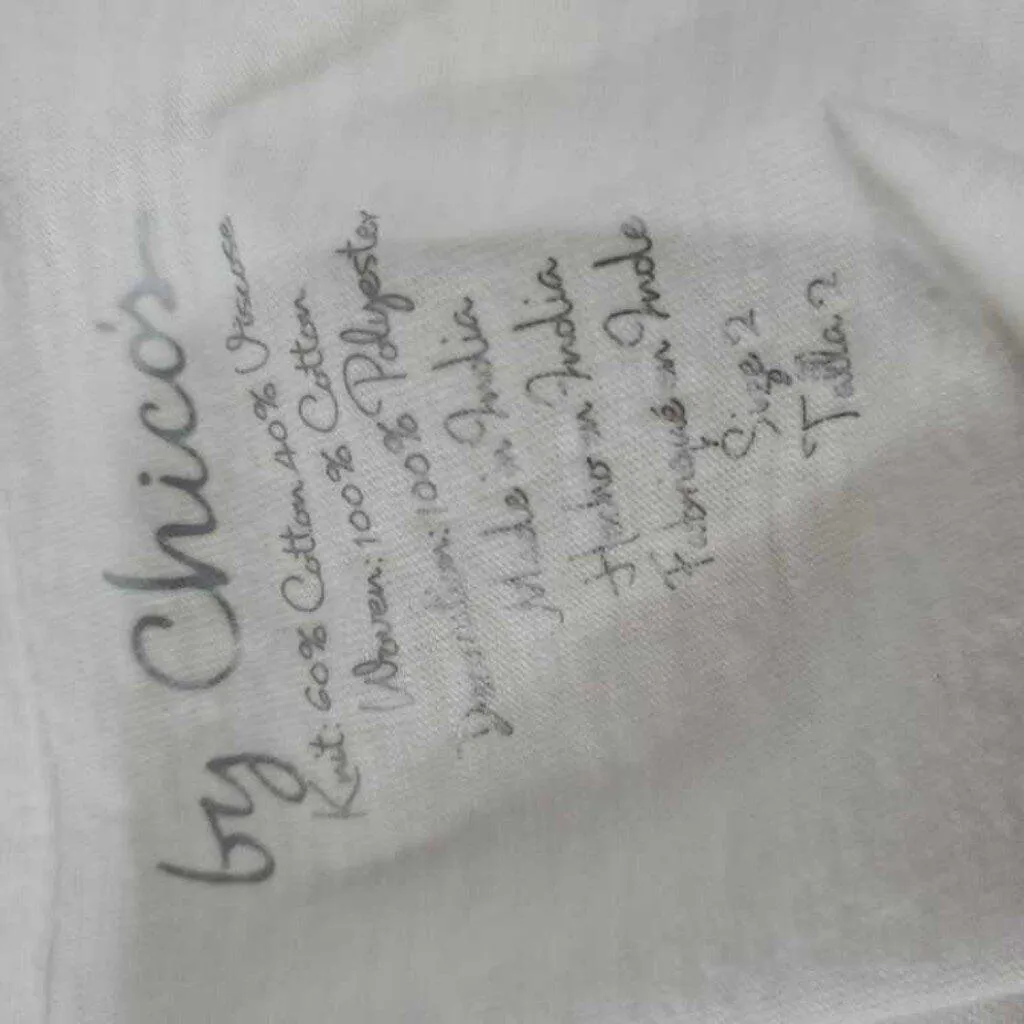 by Chico's
Knit: 60% Cotton 40% Viscose
Woven: 100% Cotton
100% Polyester
Made in India
Hecho en India
Fabriqué en Inde
Size 2
Talla 2